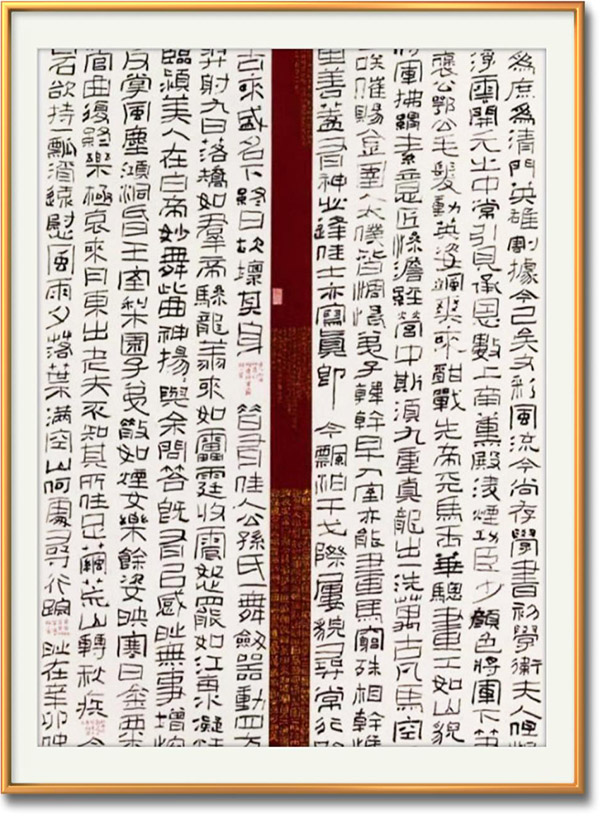 為庶為清門英雄割據今已矣文彩風流今尚存學書初學衛夫人但恨
浮雲開元之中常引見承恩數上南薰殿凌煙功臣少顏色將軍下筆
褒公鄂公毛髮動英姿颯爽來酣戰先帝飛馬玉華驄畫工如山貌
將軍拂絹素意匠慘澹經營中斯須九重真龍出一洗萬古凡馬空
咲催賜金圉人太僕皆惆悵弟子韓幹早入室亦能畫馬窮殊相幹惟
畫善蓋有神必逢佳士亦寫真即今飄泊干戈際屢貌尋常行路
古來盛名下終日坎壈其身 昔有佳人公孫氏一舞劍器動四方
羿射九日落矯如羣帝驂龍翔來如雷霆收震怒罷如江海凝
臨潁美人在白帝妙舞此曲神揚揚與余問答既有以感時撫事增惋
反掌風塵澒洞昏王室梨園弟子散如煙女樂餘姿映寒日金粟
管曲復終樂極哀來月東出老夫不知其所往足繭荒山轉愁疾 今
白石欲持一瓢酒遠慰風雨夕落葉滿空山何處尋行跡 時在辛卯仲